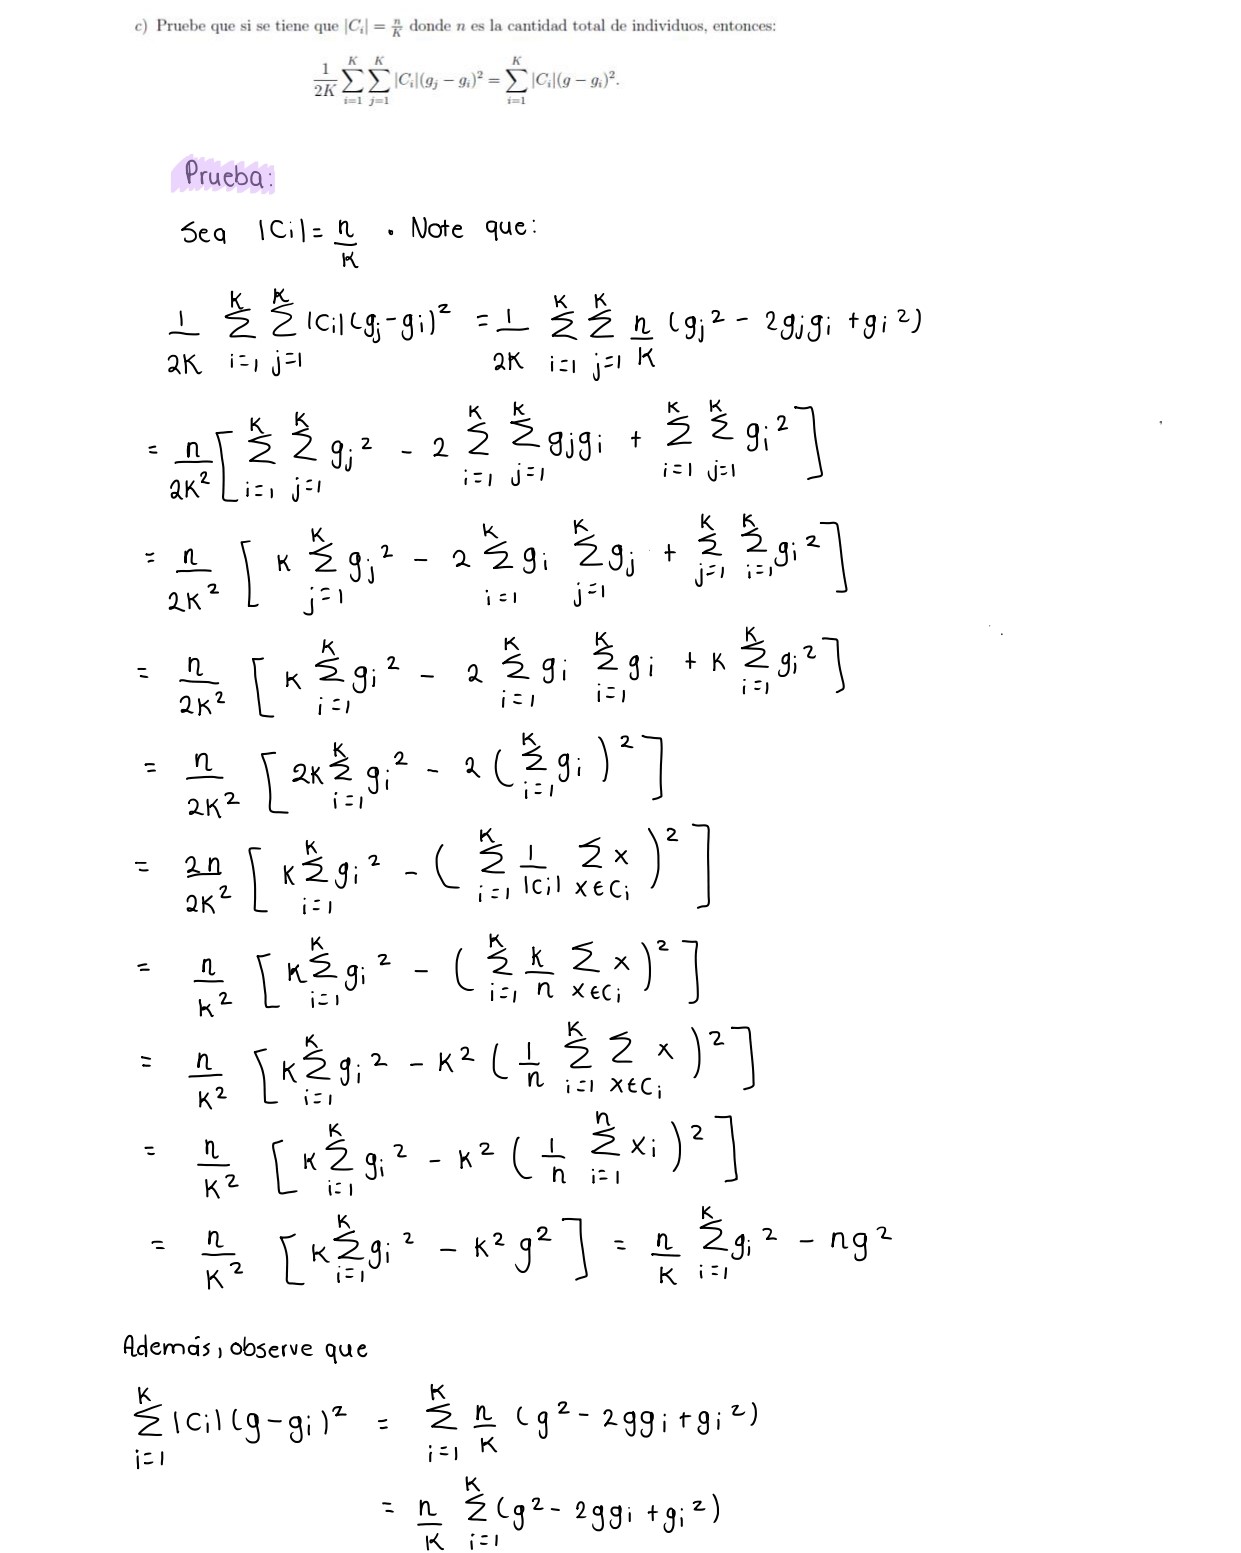 c) Pruebe que si se tiene que |C_i| = n/K donde n es la cantidad total de individuos, entonces:
1/(2K) ∑_{i=1}^{K} ∑_{j=1}^{K} |C_i|(g_j − g_i)² = ∑_{i=1}^{K} |C_i|(g − g_i)².
Prueba:
Sea |C_i| = n/K . Note que:
1/(2K) ∑_{i=1}^{K} ∑_{j=1}^{K} |C_i|(g_j − g_i)² = 1/(2K) ∑_{i=1}^{K} ∑_{j=1}^{K} n/K (g_j² − 2g_jg_i + g_i²)
= n/(2K²) [ ∑_{i=1}^{K} ∑_{j=1}^{K} g_j² − 2 ∑_{i=1}^{K} ∑_{j=1}^{K} g_jg_i + ∑_{i=1}^{K} ∑_{j=1}^{K} g_i² ]
= n/(2K²) [ K ∑_{j=1}^{K} g_j² − 2 ∑_{i=1}^{K} g_i ∑_{j=1}^{K} g_j + ∑_{j=1}^{K} ∑_{i=1}^{K} g_i² ]
= n/(2K²) [ K ∑_{i=1}^{K} g_i² − 2 ∑_{i=1}^{K} g_i ∑_{i=1}^{K} g_i + K ∑_{i=1}^{K} g_i² ]
= n/(2K²) [ 2K ∑_{i=1}^{K} g_i² − 2 ( ∑_{i=1}^{K} g_i )² ]
= 2n/(2K²) [ K ∑_{i=1}^{K} g_i² − ( ∑_{i=1}^{K} 1/|C_i| ∑_{x∈C_i} x )² ]
= n/K² [ K ∑_{i=1}^{K} g_i² − ( ∑_{i=1}^{K} K/n ∑_{x∈C_i} x )² ]
= n/K² [ K ∑_{i=1}^{K} g_i² − K² ( 1/n ∑_{i=1}^{K} ∑_{x∈C_i} x )² ]
= n/K² [ K ∑_{i=1}^{K} g_i² − K² ( 1/n ∑_{i=1}^{n} x_i )² ]
= n/K² [ K ∑_{i=1}^{K} g_i² − K² g² ] = n/K ∑_{i=1}^{K} g_i² − ng²
Además, observe que
∑_{i=1}^{K} |C_i|(g − g_i)² = ∑_{i=1}^{K} n/K (g² − 2gg_i + g_i²)
= n/K ∑_{i=1}^{K} (g² − 2gg_i + g_i²)